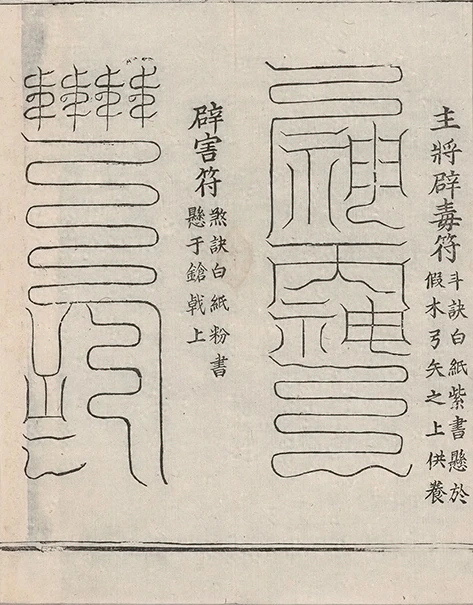 主將辟毒符
斗訣白紙紫書懸於
假木弓矢之上供養
辟害符
煞訣白紙粉書
懸于鎗戟上